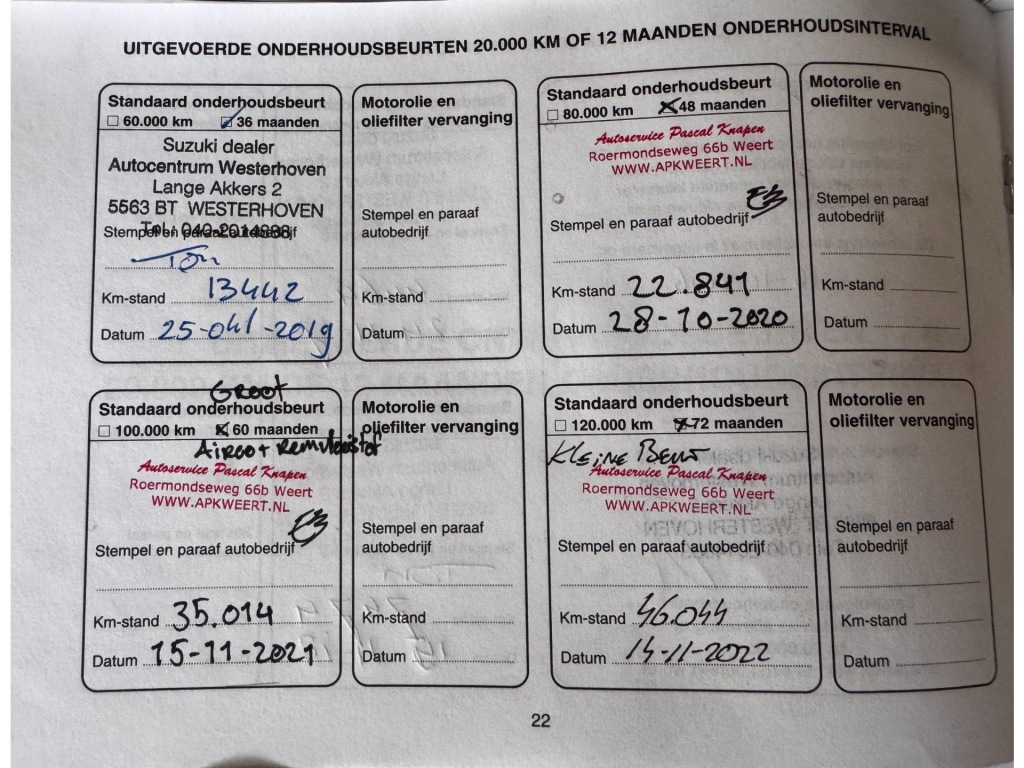 UITGEVOERDE ONDERHOUDSBEURTEN 20.000 KM OF 12 MAANDEN ONDERHOUDSINTERVAL
Standaard onderhoudsbeurt
60.000 km 36 maanden
Suzuki dealer
Autocentrum Westerhoven
Lange Akkers 2
5563 BT WESTERHOVEN
Tel. 040-2014888
Stempel en paraaf autobedrijf
Ton
Km-stand 13442
Datum 25-okt-2019
Motorolie en
oliefilter vervanging
Stempel en paraaf
autobedrijf
Km-stand
Datum
Standaard onderhoudsbeurt
80.000 km 48 maanden
Autoservice Pascal Knapen
Roermondseweg 66b Weert
WWW.APKWEERT.NL
Stempel en paraaf autobedrijf
Km-stand 22.841
Datum 28-10-2020
Motorolie en
oliefilter vervanging
Stempel en paraaf
autobedrijf
Km-stand
Datum
GROOT
Standaard onderhoudsbeurt
100.000 km 60 maanden
Airco + Remvloeistof
Autoservice Pascal Knapen
Roermondseweg 66b Weert
WWW.APKWEERT.NL
Stempel en paraaf autobedrijf
Km-stand 35.014
Datum 15-11-2021
Motorolie en
oliefilter vervanging
Stempel en paraaf
autobedrijf
Km-stand
Datum
Standaard onderhoudsbeurt
120.000 km 72 maanden
Kleine Beurt
Autoservice Pascal Knapen
Roermondseweg 66b Weert
WWW.APKWEERT.NL
Stempel en paraaf autobedrijf
Km-stand 46.044
Datum 14-11-2022
Motorolie en
oliefilter vervanging
Stempel en paraaf
autobedrijf
Km-stand
Datum
22